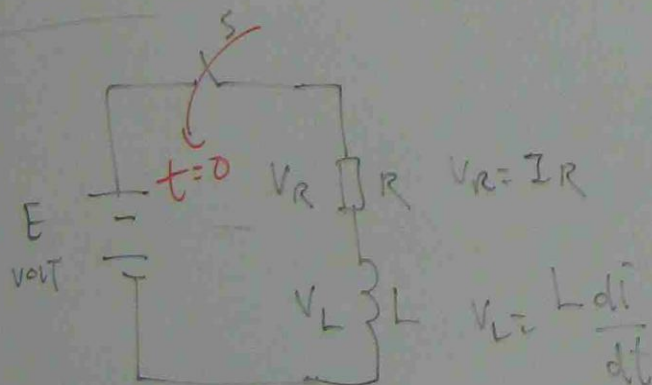 S
t=0
E
VOLT
V_R R V_R = IR
V_L L V_L = L di/dt